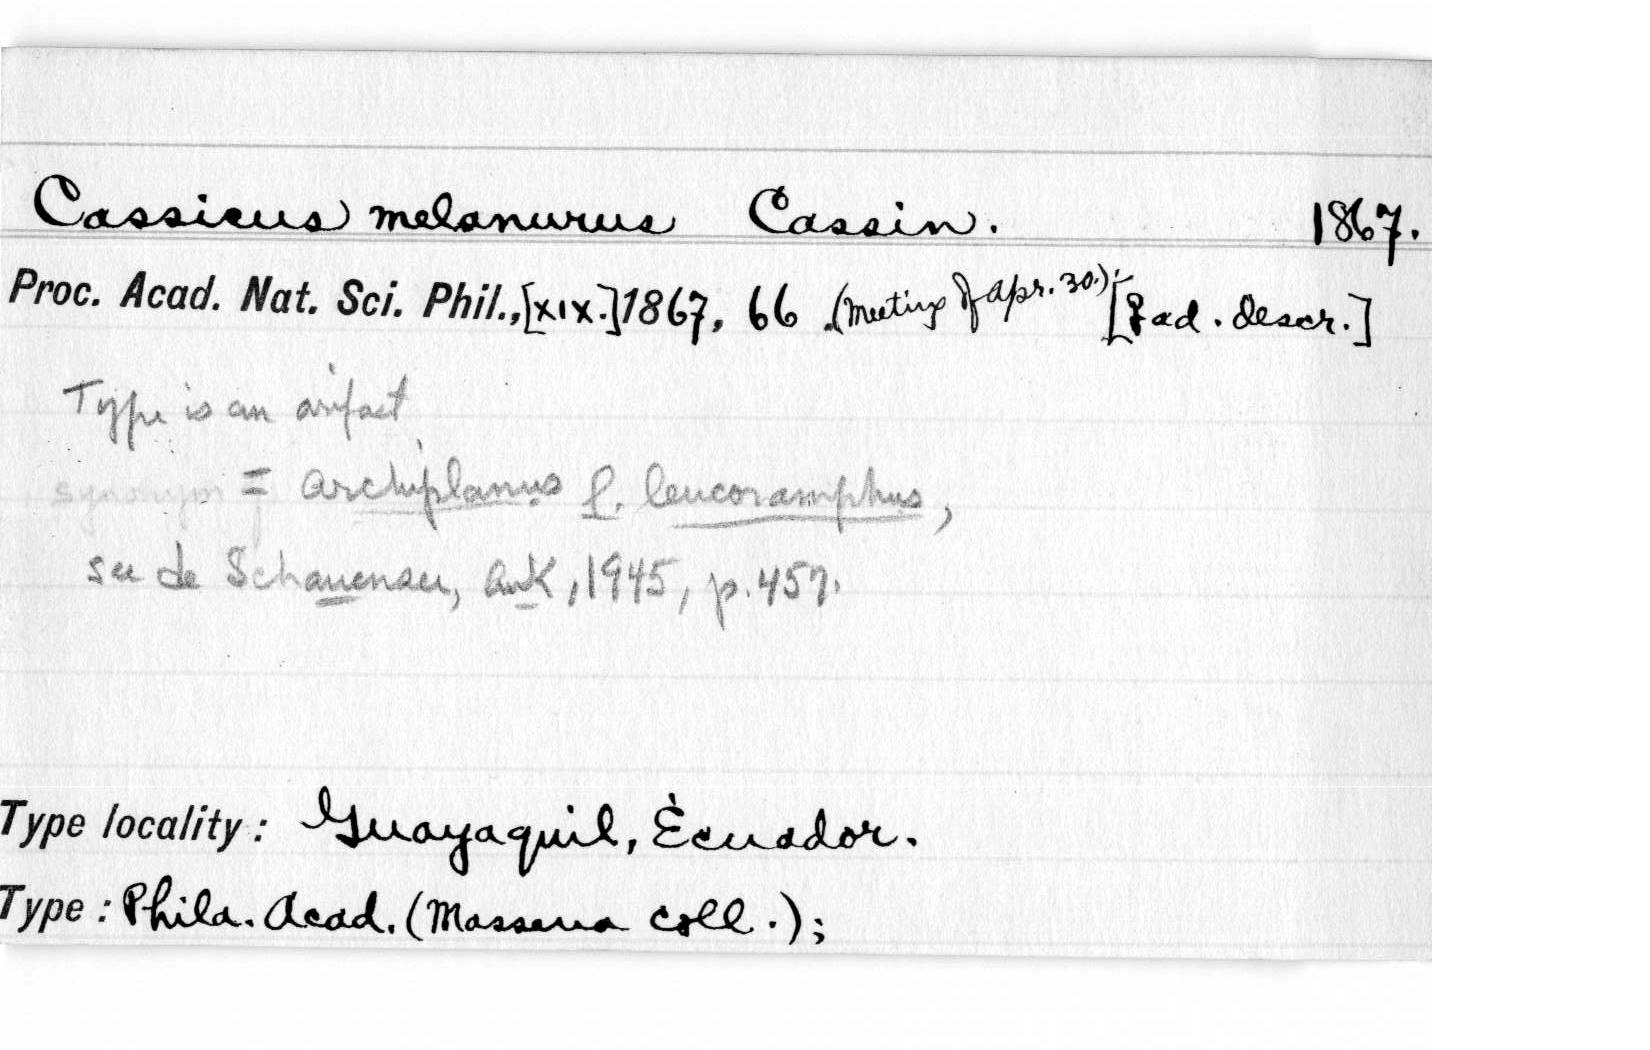 Cassicus melanurus Cassin. 1867.
Proc. Acad. Nat. Sci. Phil., [XIX.] 1867, 66 (Meeting of Apr. 30.); [ ad. descr.]
Type is an arifact
synonym = Archiplanus l. leucoramphus,
see de Schauensee, Auk, 1945, p. 457.
Type locality: Guayaquil, Ecuador.
Type: Phila. Acad. (Massena coll.);